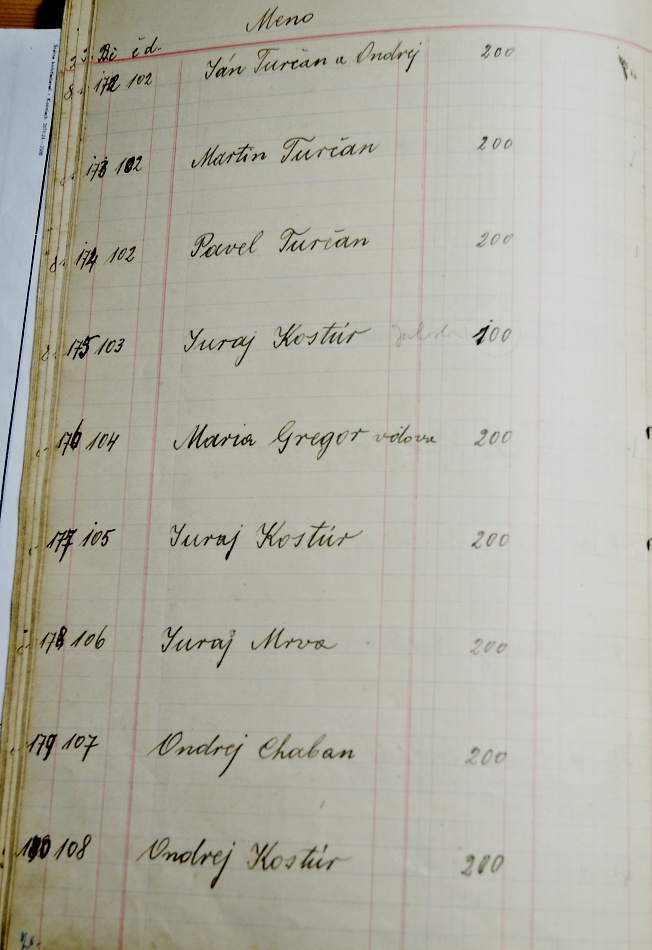 Meno
Bč čd.
172 102 Ján Turčan a Ondrej 200
173 102 Martin Turčan 200
174 102 Pavel Turčan 200
175 103 Juraj Kostúr 100
176 104 Maria Gregor vdova 200
177 105 Juraj Kostúr 200
178 106 Juraj Mrva 200
179 107 Ondrej Chaban 200
180 108 Ondrej Kostúr 200